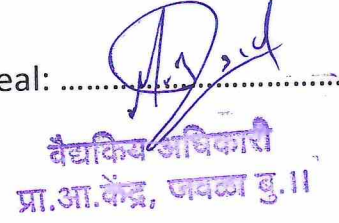 eal: ..............................
वैद्यकिय अधिकारी
प्रा.आ.केंद्र, जवळा बु.॥